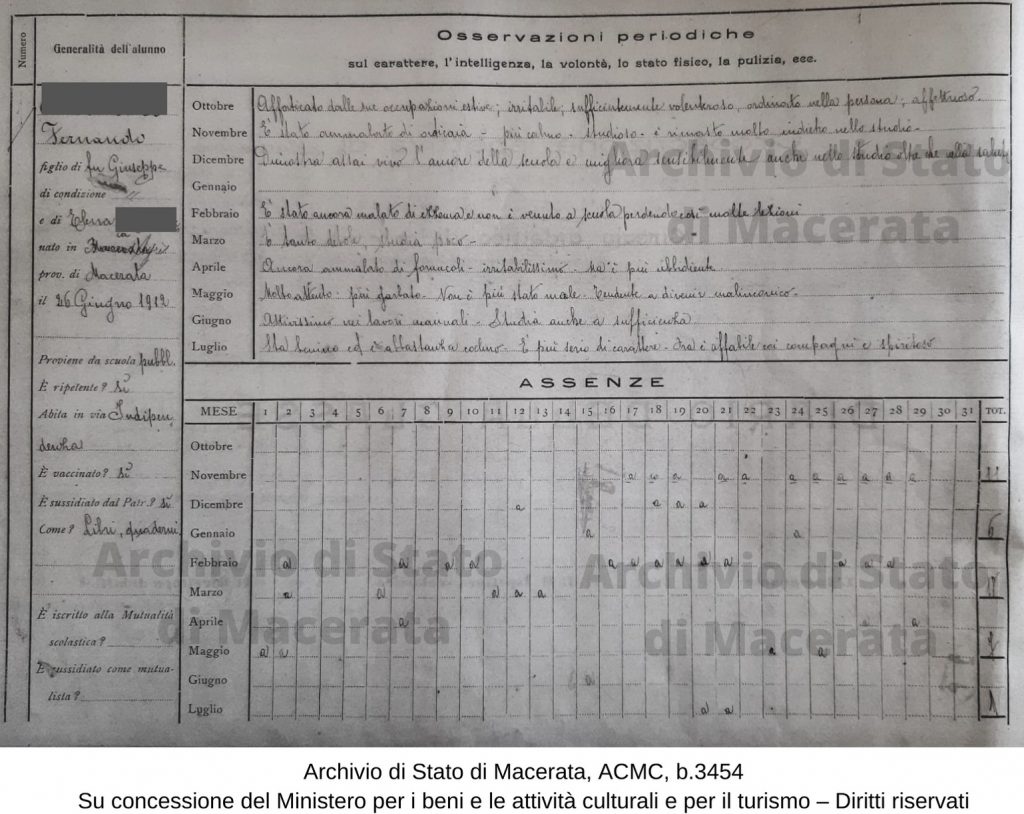 Numero
Generalità dell'alunno
Fernando
figlio di fu Giuseppe
di condizione
e di
nato in
prov. di Macerata
il 26 Giugno 1912
Proviene da scuola pubbl.
È ripetente? Sì
Abita in via Indipen
denza
È vaccinato? Sì
È sussidiato dal Patr.? Sì
Come? Libri, quaderni
È iscritto alla Mutualità
scolastica?
È sussidiato come mutua-
lista?
Osservazioni periodiche
sul carattere, l'intelligenza, la volontà, lo stato fisico, la pulizia, ecc.
Ottobre Affaticato dalle sue occupazioni estive; irritabile; sufficientemente volenteroso, ordinato nella persona; affettuoso.
Novembre È stato ammalato di - più calmo - studioso - è rimasto molto indietro nello studio -
Dicembre Dimostra assai vivo l'amore della scuola e migliora sensibilmente anche nello studio oltre che nella salute
Gennaio
Febbraio È stato ancora malato di eczema e non è venuto a scuola perdendo così molte lezioni
Marzo È tanto debole, studia poco -
Aprile Ancora ammalato di foruncoli - irritabilissimo - Ma è più ubbidiente
Maggio Molto attento - più garbato - Non è più stato male - Tendente a divenir malinconico -
Giugno Attivissimo nei lavori manuali - Studia anche a sufficienza
Luglio Sta benino ed è abbastanza calmo - È più serio di carattere - Ora è affabile coi compagni e spiritoso
ASSENZE
MESE 1 2 3 4 5 6 7 8 9 10 11 12 13 14 15 16 17 18 19 20 21 22 23 24 25 26 27 28 29 30 31 TOT.
Ottobre
Novembre a a a a a a a a a a a 11
Dicembre a a a a
Gennaio a a 6
Febbraio a a a a a a a a a a a a a
Marzo a a a a a
Aprile a a
Maggio a a a a
Giugno a
Luglio a a 1
Archivio di Stato
di Macerata
Archivio di Stato
di Macerata
Archivio di Stato
di Macerata
Archivio di Stato di Macerata, ACMC, b.3454
Su concessione del Ministero per i beni e le attività culturali e per il turismo – Diritti riservati